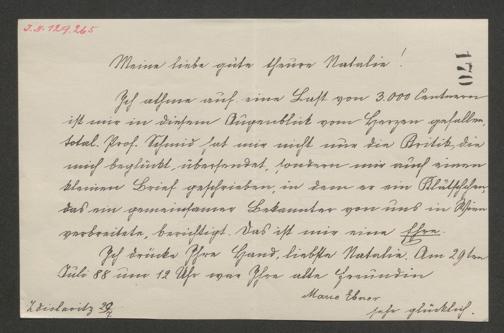 J.N. 129.265
170
Meine liebe gute theure Natalie!
Ich athme auf. eine Last von 3.000 Centnern
ist mir in diesem Augenblick vom Herzen gefallen,
total. Prof. Schmid hat mir nicht nur die Kritik, die
mich beglückt, übersendet, sondern mir auch einen
kleinen Brief geschrieben, in dem er ein Klätschchen,
das ein gemeinsamer Bekannter von uns in Wien
verbreitete, berichtigt. Das ist mir eine Ehre.
Ich drücke Ihre Hand, liebste Natalie. Am 29ten
Juli 88 um 12 Uhr war Ihre alte Freundin
Marie Ebner
sehr glücklich.
Zdislavitz 29/7